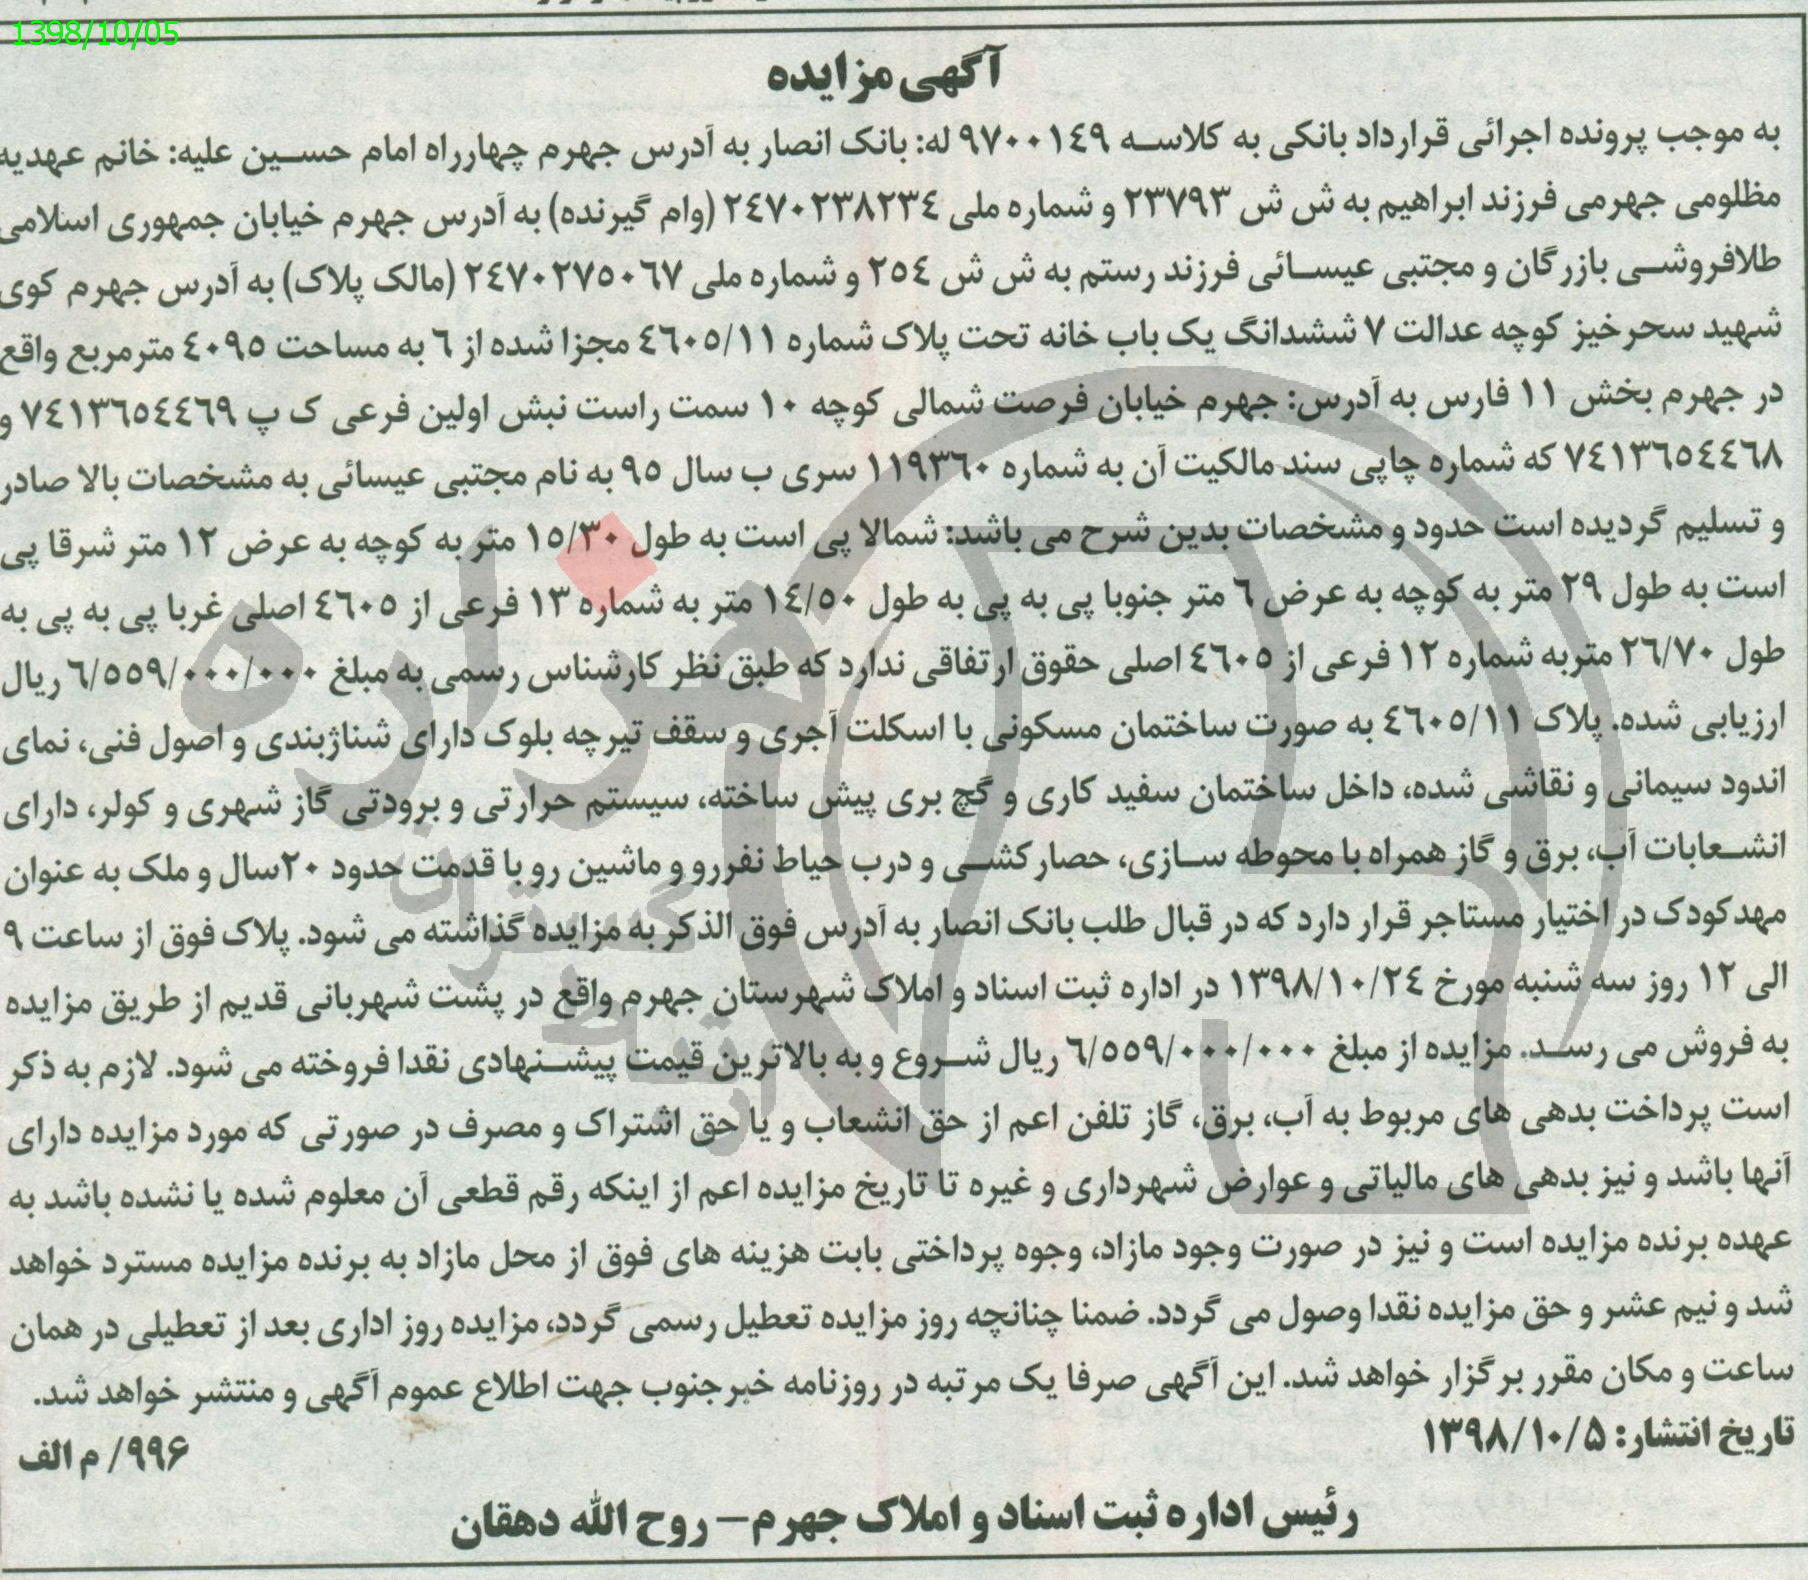 1398/10/05
آگهی مزایده
به موجب پرونده اجرائی قرارداد بانکی به کلاسه ٩٧٠٠١٤٩ له: بانک انصار به آدرس جهرم چهارراه امام حسین علیه: خانم عهدیه
مظلومی جهرمی فرزند ابراهیم به ش ش ٢٣٧٩٣ و شماره ملی ٢٤٧٠٢٣٨٢٣٤ (وام گیرنده) به آدرس جهرم خیابان جمهوری اسلامی
طلافروشی بازرگان و مجتبی عیسائی فرزند رستم به ش ش ٢٥٤ و شماره ملی ٢٤٧٠٢٧٥٠٦٧ (مالک پلاک) به آدرس جهرم کوی
شهید سحرخیز کوچه عدالت ٧ ششدانگ یک باب خانه تحت پلاک شماره ٤٦٠٥/١١ مجزا شده از ٦ به مساحت ٤٠٩٥ مترمربع واقع
در جهرم بخش ١١ فارس به آدرس: جهرم خیابان فرصت شمالی کوچه ١٠ سمت راست نبش اولین فرعی ک پ ٧٤١٣٦٥٤٤٦٩ و
٧٤١٣٦٥٤٤٦٨ که شماره چاپی سند مالکیت آن به شماره ١١٩٣٦٠ سری ب سال ٩٥ به نام مجتبی عیسائی به مشخصات بالا صادر
و تسلیم گردیده است حدود و مشخصات بدین شرح می باشد: شمالا پی است به طول ١٥/٣٠ متر به کوچه به عرض ١٢ متر شرقا پی
است به طول ٢٩ متر به کوچه به عرض ٦ متر جنوبا پی به پی به طول ١٤/٥٠ متر به شماره ١٣ فرعی از ٤٦٠٥ اصلی غربا پی به پی به
طول ٢٦/٧٠ متربه شماره ١٢ فرعی از ٤٦٠٥ اصلی حقوق ارتفاقی ندارد که طبق نظر کارشناس رسمی به مبلغ ٦/٥٥٩/٠٠٠/٠٠٠ ریال
ارزیابی شده. پلاک ٤٦٠٥/١١ به صورت ساختمان مسکونی با اسکلت آجری و سقف تیرچه بلوک دارای شناژبندی و اصول فنی، نمای
اندود سیمانی و نقاشی شده، داخل ساختمان سفید کاری و گچ بری پیش ساخته، سیستم حرارتی و برودتی گاز شهری و کولر، دارای
انشعابات آب، برق و گاز همراه با محوطه سازی، حصارکشی و درب حیاط نفررو و ماشین رو با قدمت حدود ٢٠سال و ملک به عنوان
مهدکودک در اختیار مستاجر قرار دارد که در قبال طلب بانک انصار به آدرس فوق الذکر به مزایده گذاشته می شود. پلاک فوق از ساعت ٩
الی ١٢ روز سه شنبه مورخ ١٣٩٨/١٠/٢٤ در اداره ثبت اسناد و املاک شهرستان جهرم واقع در پشت شهربانی قدیم از طریق مزایده
به فروش می رسد. مزایده از مبلغ ٦/٥٥٩/٠٠٠/٠٠٠ ریال شروع و به بالاترین قیمت پیشنهادی نقدا فروخته می شود. لازم به ذکر
است پرداخت بدهی های مربوط به آب، برق، گاز تلفن اعم از حق انشعاب و یا حق اشتراک و مصرف در صورتی که مورد مزایده دارای
آنها باشد و نیز بدهی های مالیاتی و عوارض شهرداری و غیره تا تاریخ مزایده اعم از اینکه رقم قطعی آن معلوم شده یا نشده باشد به
عهده برنده مزایده است و نیز در صورت وجود مازاد، وجوه پرداختی بابت هزینه های فوق از محل مازاد به برنده مزایده مسترد خواهد
شد و نیم عشر و حق مزایده نقدا وصول می گردد. ضمنا چنانچه روز مزایده تعطیل رسمی گردد، مزایده روز اداری بعد از تعطیلی در همان
ساعت و مکان مقرر برگزار خواهد شد. این آگهی صرفا یک مرتبه در روزنامه خبرجنوب جهت اطلاع عموم آگهی و منتشر خواهد شد.
تاریخ انتشار: ۱۳۹۸/۱۰/۵
۹۹۶/ م الف
رئیس اداره ثبت اسناد و املاک جهرم– روح الله دهقان